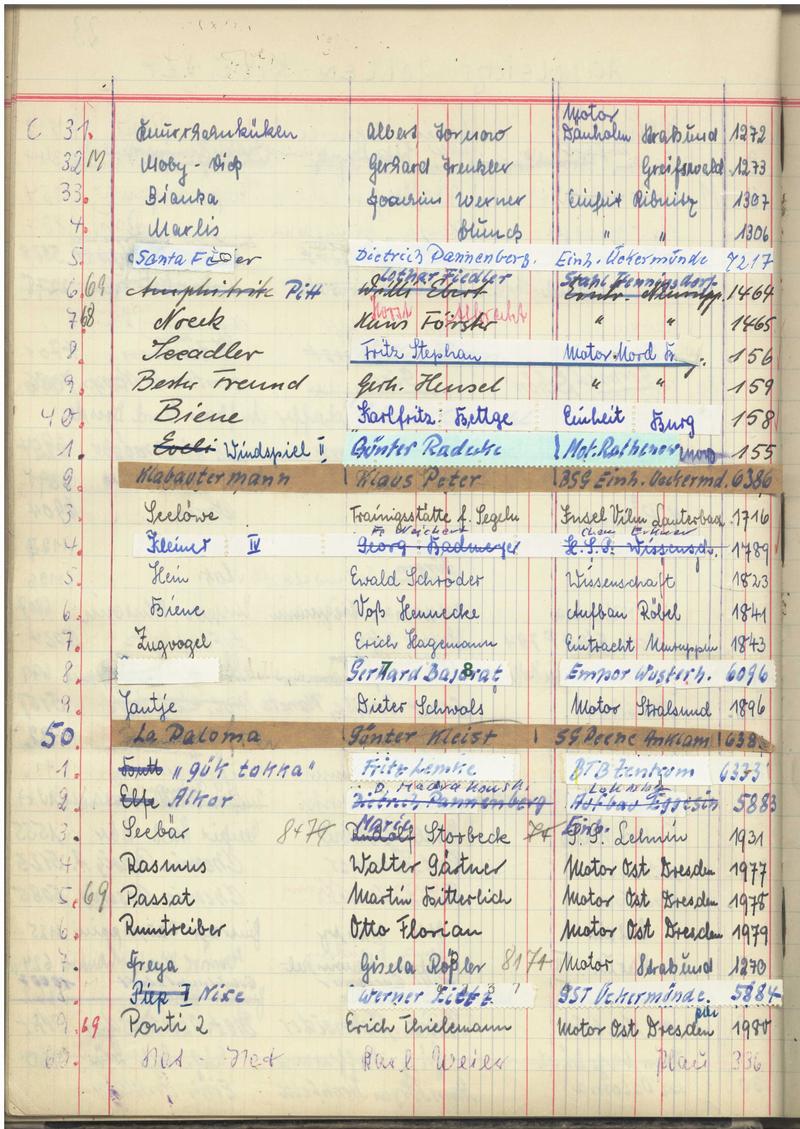 Motor
C 31. Knurrhahnküken Albert Tornow Dänholm Stralsund 1272
32 M Moby-Dick Gerhard Trenkler Greifswald 1273
33. Bianka Joachim Werner Einheit Ribnitz 1307
4. Marlis Blunck " " 1306
5. Santa Fé Dietrich Pannenberg. Einh. Uckermünde 7217
Lothar Fiedler Stahl Hennigsdorf
6. 69 Amphitrite Pitt Willi Ebert 1464
Horst Albrecht
7. 68 Noeck Hans Förster " " 1465
8 Seeadler Fritz Stephan Motor Nord 156
9. Bester Freund Gerh. Hensel " " 159
40. Biene Karlfritz Hettge Einheit Burg 158
1. Eveli Windspiel II Günter Radecke Mot. Rathenow 155
2 Klabautermann Klaus Peter BSG Einh. Ueckermd. 6386
3 Seelöwe Trainigsstätte f. Segeln Insel Vilm Lauterbach 1716
F. Weichert Chem.
4 Kleiner IV Georg H.S.G. Wissensch. 1789
5. Hein Ewald Schröder Wissenschaft 1823
6. Biene Voß Hennecke Aufbau Röbel 1841
7. Zugvogel Erich Hagemann Eintracht Neuruppin 1843
8 Gerhard Basarat 7 8 Empor Wusterh. 6096
9. Jantje Dieter Schwols Motor Stralsund 1896
50 La Paloma Günter Kleist SG Peene Anklam 638
1. "gök tokka" Fritz Lemke BTB Zentrum 6373
D.
2 Elfe Alkor Dietrich Pannenberg Aufbau Eggesin 5883
Marit Einh.
3. Seebär 8479 Rudolf Storbeck 74 Lehnin 1931
4 Rasmus Walter Gärtner Motor Ost Dresden 1977
5. 69 Passat Martin Bitterlich Motor Ost Dresden 1978
6 Rumtreiber Otto Florian Motor Ost Dresden 1979
7. Freya Gisela Rößler 8174 Motor Stralsund 1270
Piep I Nixe Werner GST Uckermünde. 5884
9. 69 Ponti 2 Erich Thielemann Motor Ost Dresden 1980
60. Het - Het Karl Weier Plau 336